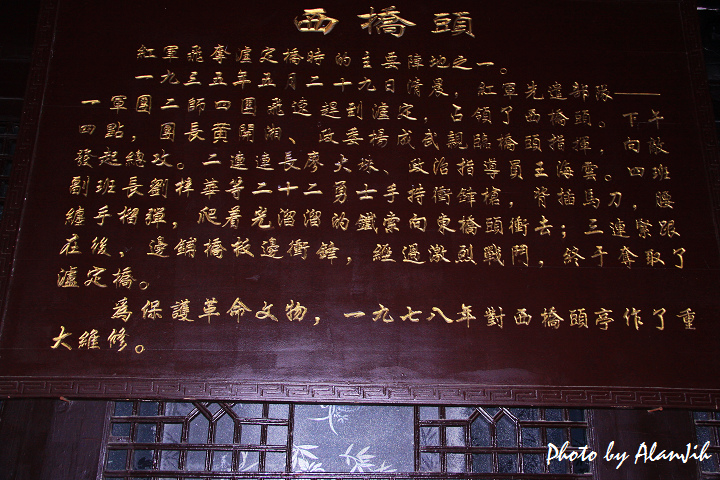 西橋頭
紅軍飛奪瀘定橋時的主要陣地之一。
一九三五年五月二十九日清晨，紅軍先遣部隊——
一軍團二師四團飛速趕到瀘定，占領了西橋頭。下午
四點，團長黃開湘、政委楊成武親臨橋頭指揮，向敵
發起總攻。二連連長廖大珠、政治指導員王海雲。四班
副班長劉梓華等二十二勇士手持衝鋒槍，背插馬刀，腰
纏手榴彈，爬着光溜溜的鐵索向東橋頭衝去；三連緊跟
在後，邊鋪橋板邊衝鋒，經過激烈戰鬥，終于奪取了
瀘定橋。
為保護革命文物，一九七八年對西橋頭亭作了重
大維修。
Photo by AlanJih